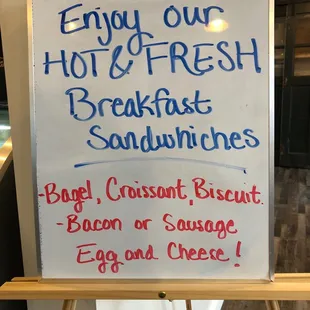 Enjoy our
HOT & FRESH
Breakfast
Sandwhiches
-Bagel, Croissant, Biscuit.
-Bacon or Sausage
Egg and Cheese!